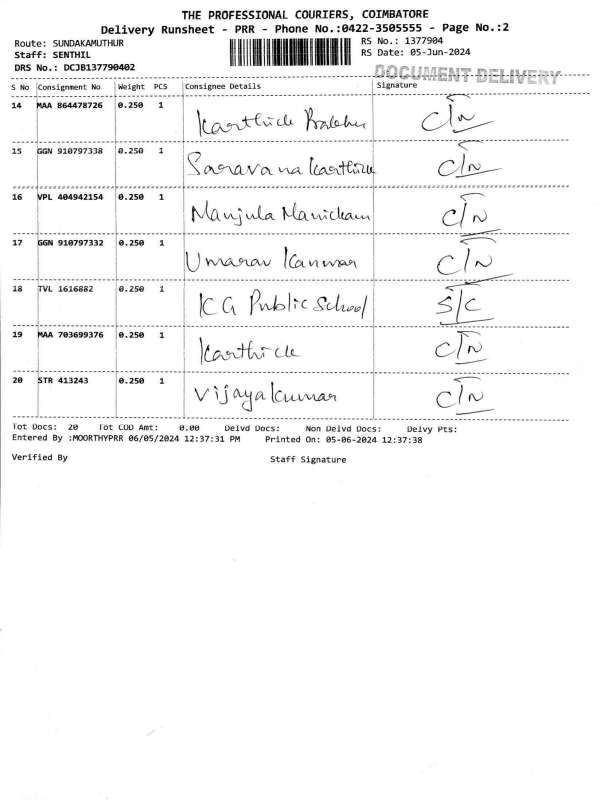 THE PROFESSIONAL COURIERS, COIMBATORE
Delivery Runsheet - PRR - Phone No.:0422-3505555 - Page No.:2
Route: SUNDAKAMUTHUR RS No.: 1377904
Staff: SENTHIL RS Date: 05-Jun-2024
DRS No.: DCJB137790402
DOCUMENT DELIVERY
S No Consignment No Weight PCS Consignee Details Signature
14 MAA 864478726 0.250 1 Karthick C/N
15 GGN 910797338 0.250 1 Saravana Karthick C/N
16 VPL 404942154 0.250 1 Manjula Manickam C/N
17 GGN 910797332 0.250 1 Umarav Kanwar C/N
18 TVL 1616882 0.250 1 K G Public School S/C
19 MAA 703699376 0.250 1 Karthick C/N
20 STR 413243 0.250 1 Vijayakumar C/N
Tot Docs: 20 Tot COD Amt: 0.00 Delvd Docs: Non Delvd Docs: Delvy Pts:
Entered By :MOORTHYPRR 06/05/2024 12:37:31 PM Printed On: 05-06-2024 12:37:38
Verified By Staff Signature